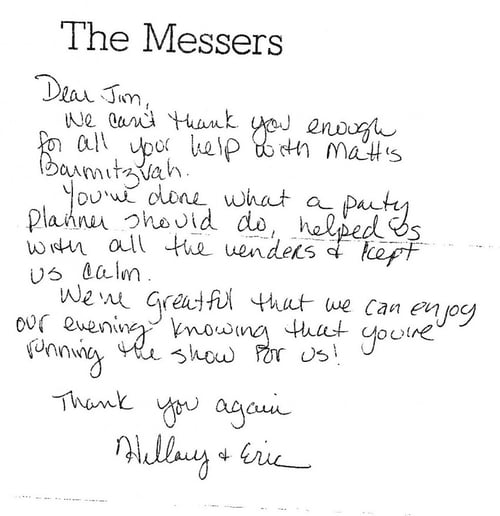 The Messers
Dear Jim,
We can't thank you enough
for all your help with Matt's
Barmitzvah.
You've done what a party
planner should do, helped us
with all the venders & kept
us calm.
We're greatful that we can enjoy
our evening knowing that you're
running the show for us!
Thank you again
Hillary & Eric